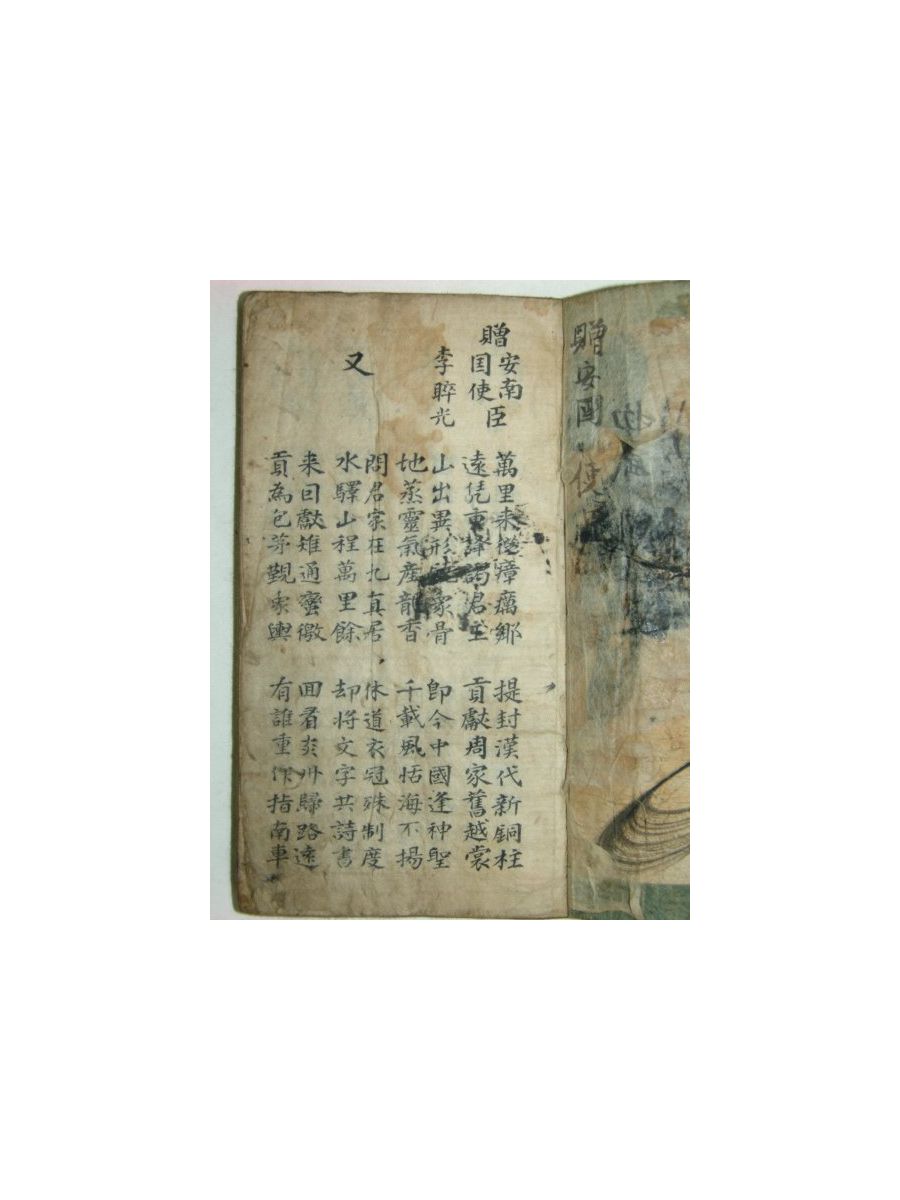 贈安
使
贈安南国使臣
李睟光
萬里来從瘴癘鄉
遠凭重譯謁君王
提封漢代新銅柱
貢獻周家舊越裳
山出異形饒象骨
地蒸靈氣産龍香
即今中國逢神聖
千載風恬海不揚
又
問君家在九真居
水驛山程萬里餘
休道衣冠殊制度
却將文字共詩書
来因獻雉通蠻徼
貢為包茅覲象輿
回看炎州歸路遠
有誰重作指南車